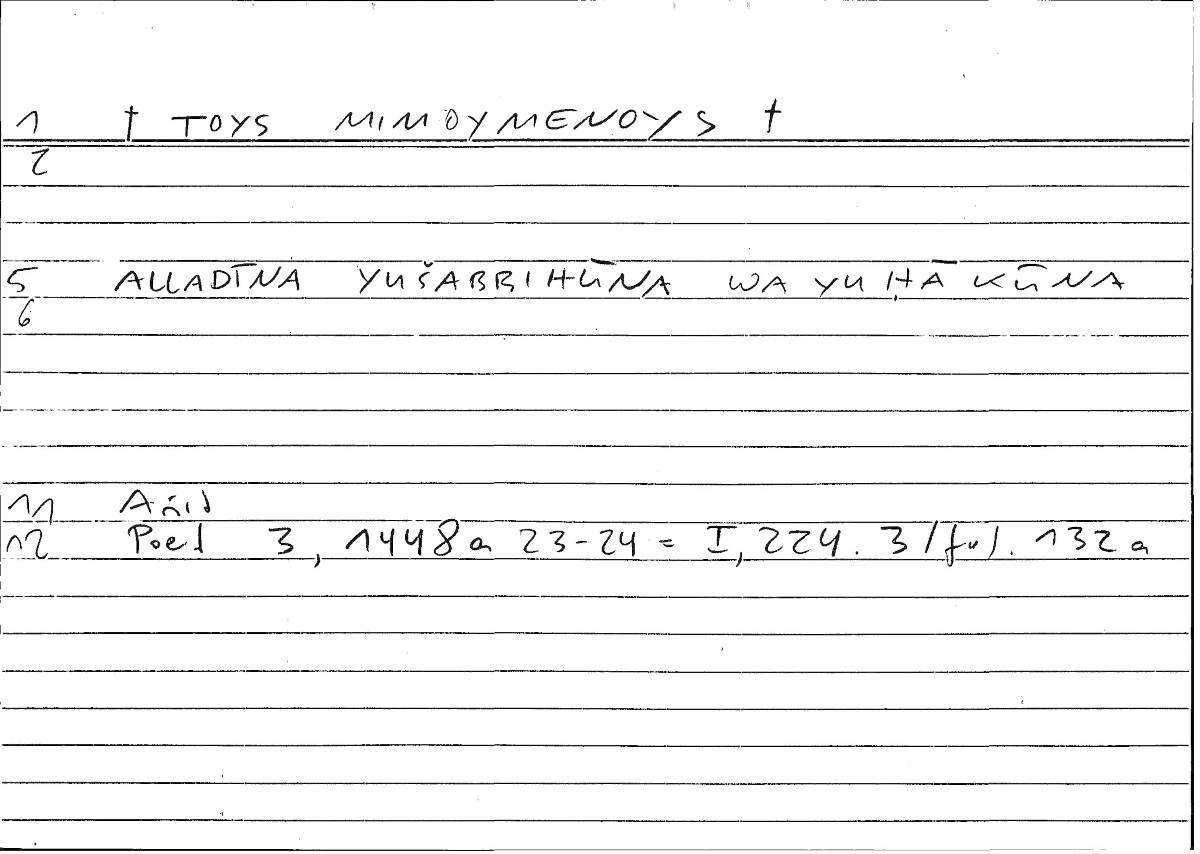 1 † TOYS MIMOYMENOYS †
2
5 ALLADĪNA YUŠABBIHŪNA WA YUḤĀKŪNA
6
11 Arist
12 Poet 3, 1448a 23-24 = I, 224. 3 / fol. 132a